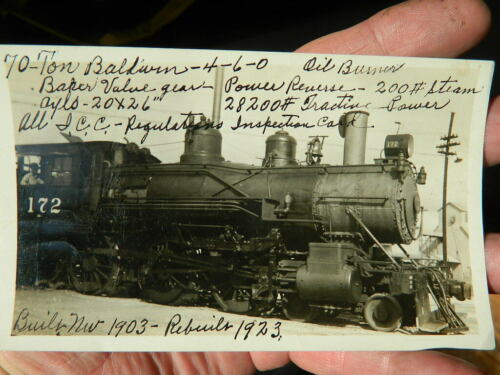 70-Ton Baldwin - 4-6-0 Oil Burner
Baker Valve gear - Power Reverse - 200# Steam
Cyls - 20x26" 28200# Tractive Power
All I.C.C. - Regulations Inspection Card
172
172
Built New 1903 - Rebuilt 1923.